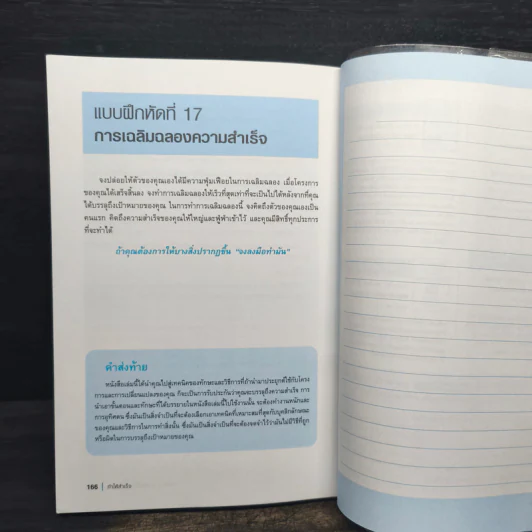 แบบฝึกหัดที่ 17
การเฉลิมฉลองความสำเร็จ
จงปล่อยให้ตัวของคุณเองได้มีความฟุ่มเฟือยในการเฉลิมฉลอง เมื่อโครงการ
ของคุณได้เสร็จสิ้นลง จงทำการเฉลิมฉลองให้เร็วที่สุดเท่าที่จะเป็นไปได้หลังจากที่คุณ
ได้บรรลุถึงเป้าหมายของคุณ ในการทำการเฉลิมฉลองนี้ จงคิดถึงตัวของคุณเองเป็น
คนแรก คิดถึงความสำเร็จของคุณให้ใหญ่และฟู่ฟ่าเข้าไว้ และคุณมีสิทธิ์ทุกประการ
ที่จะทำได้
ถ้าคุณต้องการให้บางสิ่งปรากฏขึ้น "จงลงมือทำมัน"
คำส่งท้าย
หนังสือเล่มนี้ได้นำคุณไปสู่เทคนิคของทักษะและวิธีการที่ถ้านำมาประยุกต์ใช้กับโครง
การและการเปลี่ยนแปลงของคุณ ก็จะเป็นการรับประกันว่าคุณจะบรรลุถึงความสำเร็จ การ
นำเอาขั้นตอนและทักษะที่ได้บรรยายในหนังสือเล่มนี้ไปใช้งานนั้น จะต้องทำงานหนักและ
การอุทิศตน ซึ่งมันเป็นสิ่งจำเป็นที่จะต้องเลือกเอาเทคนิคที่เหมาะสมที่สุดกับบุคลิกลักษณะ
ของคุณและวิธีการในการทำสิ่งนั้น ซึ่งมันเป็นสิ่งจำเป็นที่จะต้องจดจำไว้ว่ามันไม่มีวิธีที่ถูก
หรือผิดในการบรรลุถึงเป้าหมายของคุณ
166 | ทำให้สำเร็จ